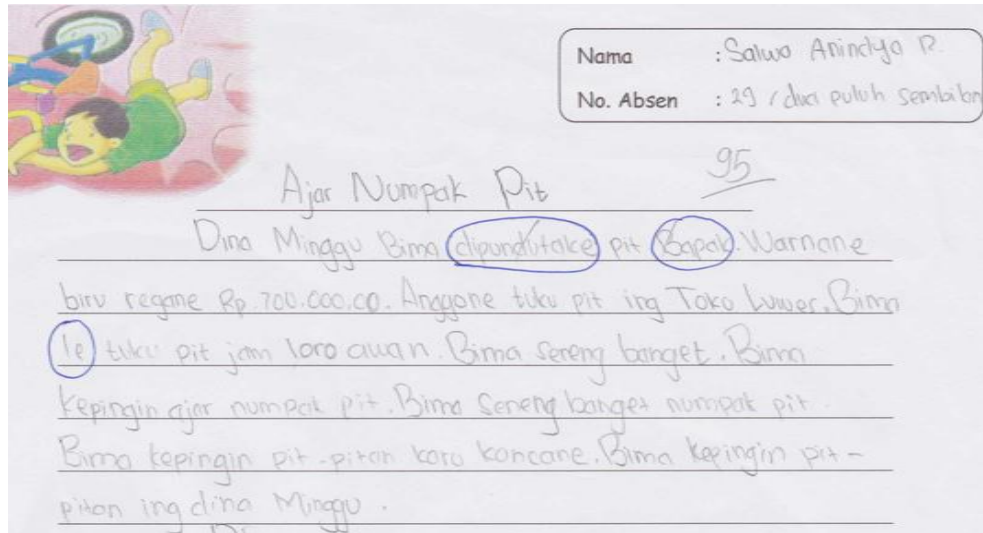 Nama : Salwa Anindya R.
No. Absen : 29 / dua puluh sembilan
95
Ajar Numpak Pit
Dina Minggu Bima dipundutake pit Bapak. Warnane
biru regane Rp. 700.000.00. Anggone tuku pit ing Toko Luwes. Bima
le tuku pit jam loro awan. Bima seneng banget. Bima
kepingin ajar numpak pit. Bima seneng banget numpak pit.
Bima kepingin pit-pitan karo kancane. Bima kepingin pit-
pitan ing dina Minggu.